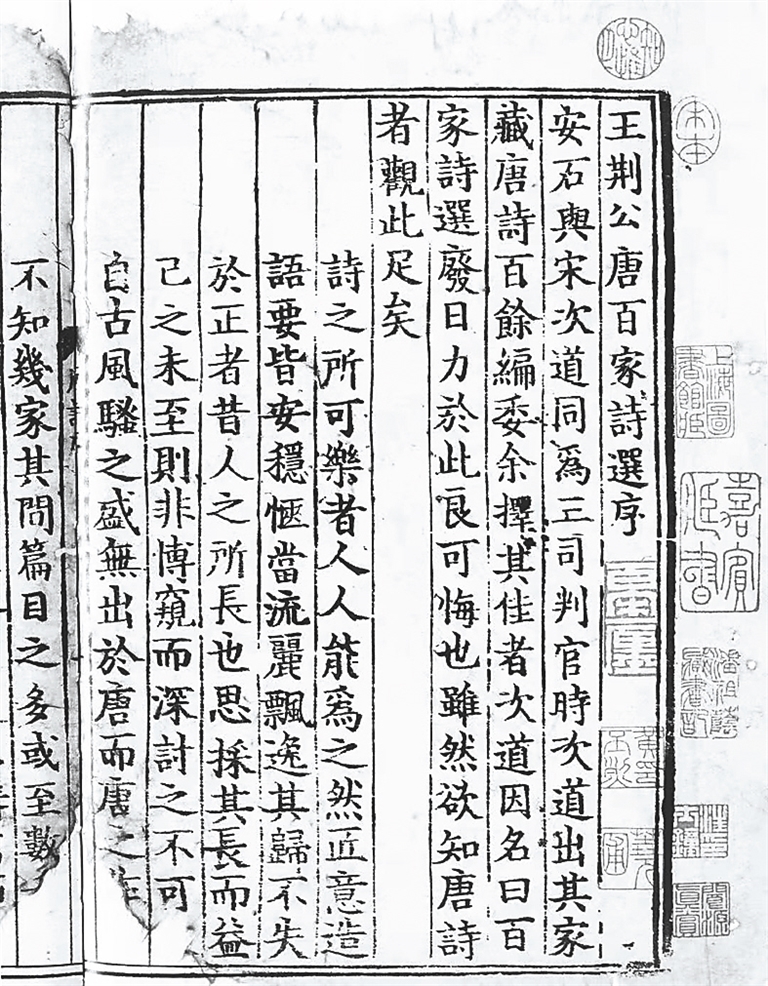 王荆公唐百家詩選序
安石與宋次道同為三司判官時次道出其家
藏唐詩百餘編委余擇其佳者次道因名曰百
家詩選廢日力於此良可悔也雖然欲知唐詩
者觀此足矣
詩之所可樂者人人能為之然匠意造
語要皆安穩愜當流麗飄逸其歸不失
於正者昔人之所長也思採其長而益
己之未至則非博窺而深討之不可
自古風騷之盛無出於唐而唐之作
不知幾家其間篇目之多或至數
上海圖
書館藏
嘉賓
藏書
潘祖蔭
藏書記
汪士鐘
閬源
真賞